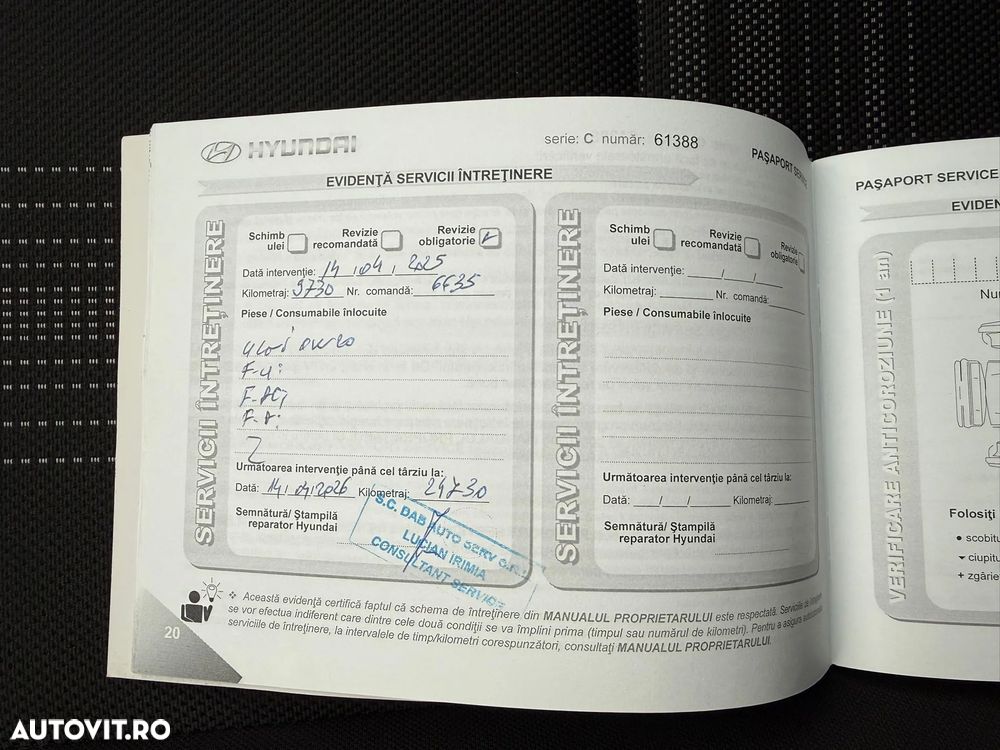 HYUNDAI
serie: C număr: 61388
PAŞAPORT SERVICE
EVIDENŢĂ SERVICII ÎNTREŢINERE
SERVICII ÎNTREŢINERE
Schimb ulei
Revizie recomandată
Revizie obligatorie
Dată intervenţie: 14 , 04 , 2025
Kilometraj: 9730 Nr. comandă: 6635
Piese / Consumabile înlocuite
F-u:
F-
F-A:
Următoarea intervenţie până cel târziu la:
Dată: 14, 04, 2026 Kilometraj: 24730
Semnătură/ Ştampilă
reparator Hyundai
S.C. DAB AUTO SERV S.R.L.
LUCIAN IRIMIA
CONSULTANT SERVICE
SERVICII ÎNTREŢINERE
Schimb ulei
Revizie recomandată
Revizie obligatorie
Dată intervenţie: / /
Kilometraj: Nr. comandă:
Piese / Consumabile înlocuite
Următoarea intervenţie până cel târziu la:
Dată: / / Kilometraj:
Semnătură/ Ştampilă
reparator Hyundai
❖ Această evidenţă certifică faptul că schema de întreţinere din MANUALUL PROPRIETARULUI este respectată. Serviciile de
se vor efectua indiferent care dintre cele două condiţii se va împlini prima (timpul sau numărul de kilometri). Pentru a asigura
serviciile de întreţinere, la intervalele de timp/kilometri corespunzători, consultaţi MANUALUL PROPRIETARULUI.
20
PAŞAPORT SERVICE
EVIDEN
VERIFICARE ANTICOROZIUNE (1 an)
Nu
Folosiţi
● scobitu
ciupitu
+ zgârie
AUTOVIT.RO
AUTOVIT.RO